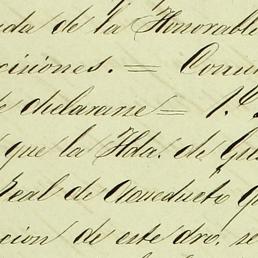 ida de la Honorable
cisiones. = Comu
e declararse = 1.º
que la Hda. de Gu
Real de Acueducto q
cion de este dro. se